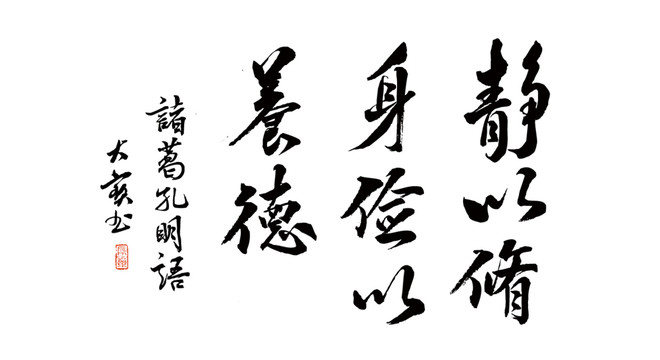 静以脩
身儉以
養德
諸葛孔明語
大寶书